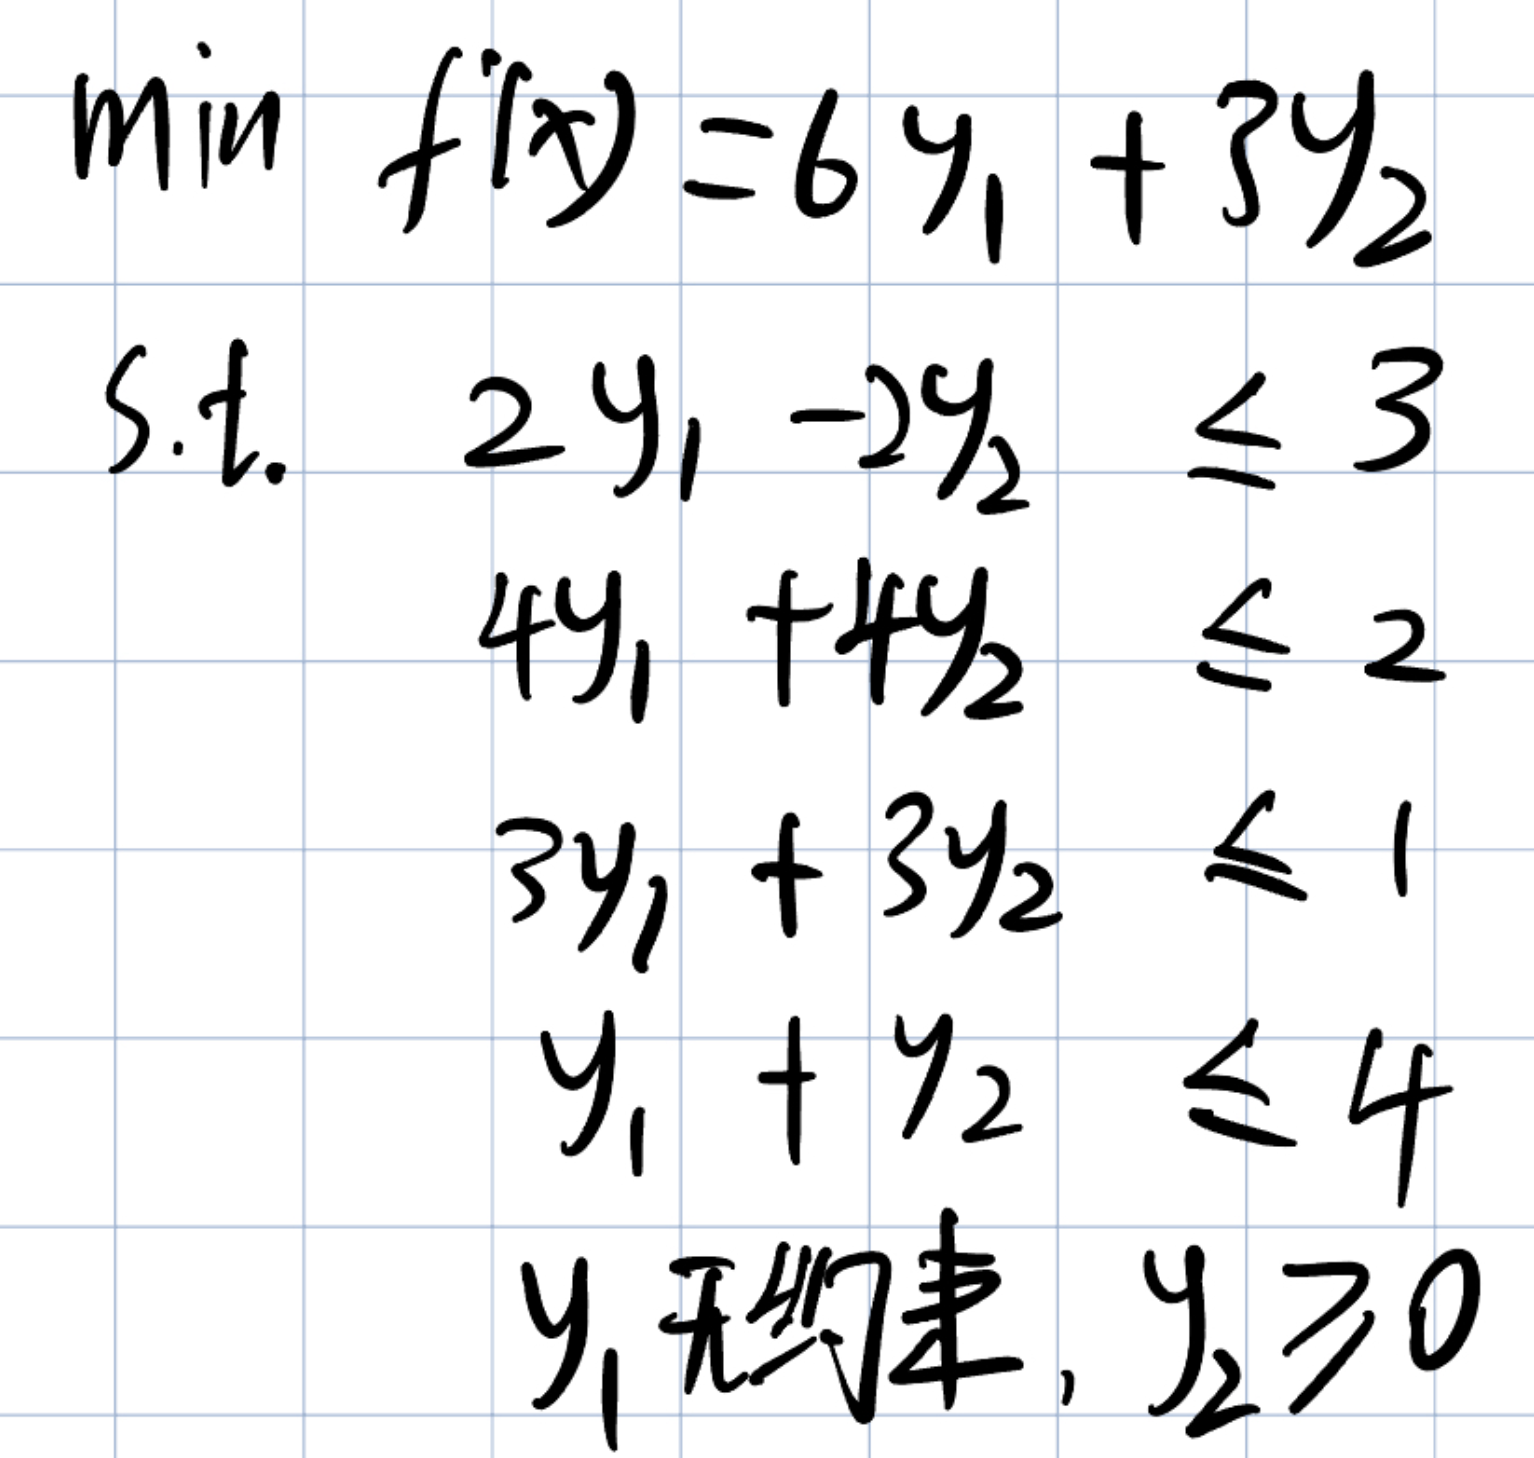 min f'(x) = 6y₁ + 3y₂
s.t. 2y₁ -2y₂ ≤ 3
4y₁ +4y₂ ≤ 2
3y₁ + 3y₂ ≤ 1
y₁ + y₂ ≤ 4
y₁ 无约束, y₂ ≥ 0